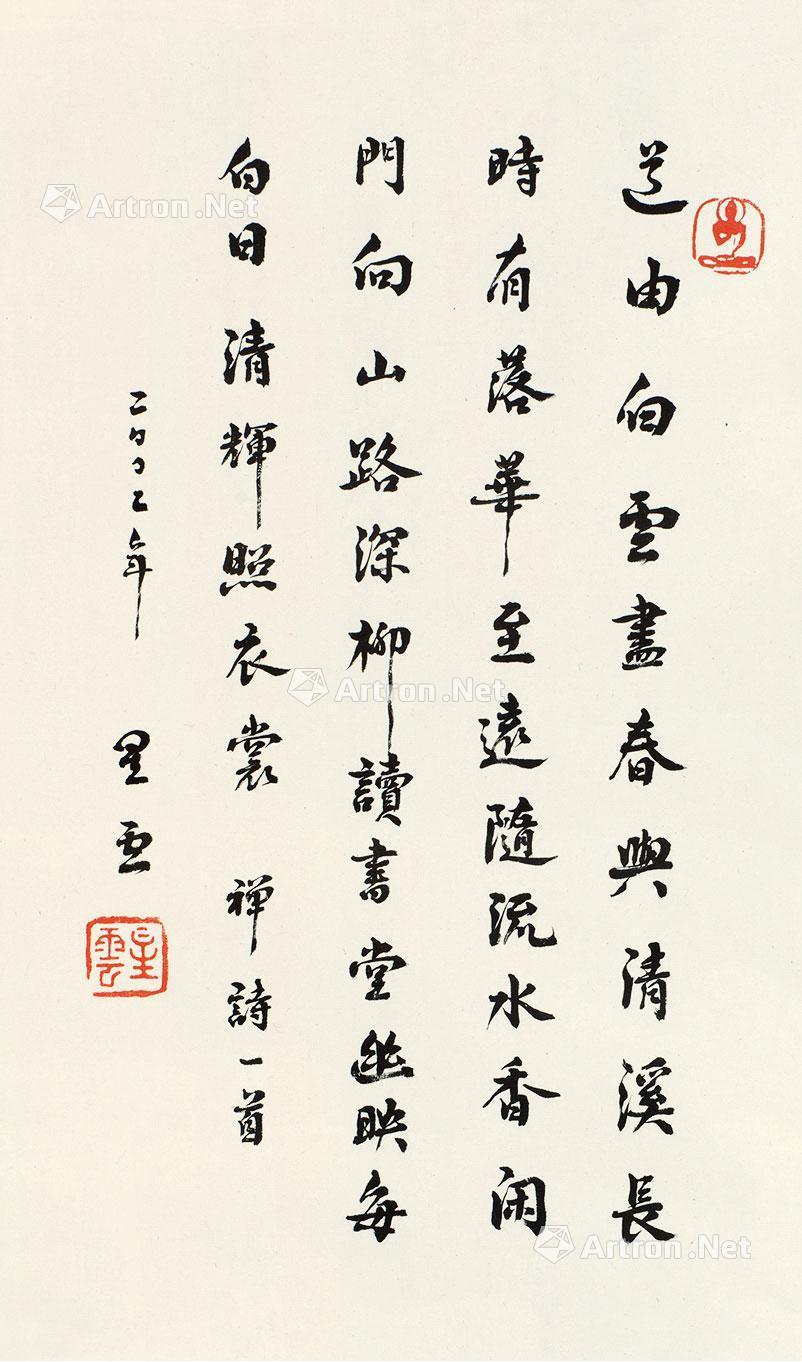 道由白雲盡春與清溪長
時有落華至遠隨流水香閑
門向山路深柳讀書堂幽映每
白日清輝照衣裳 禪詩一首
二〇〇二年 星雲
星雲
Artron.Net
Artron.Net
Artron.Net